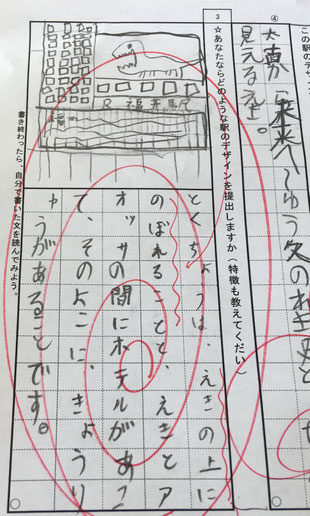 この駅のデザ
④
未来へ
見える
3
☆あなたならどのような駅のデザインを提出しますか(特徴も教えてくだい)
とくちょうは、えきの上に
のぼれることと、えきとア
オッサの間にホテルがあっ
て、そのよこに、きょうり
ゅうがあることです。
R 福井駅
書き終わったら、自分で書いた文を読んでみよう。